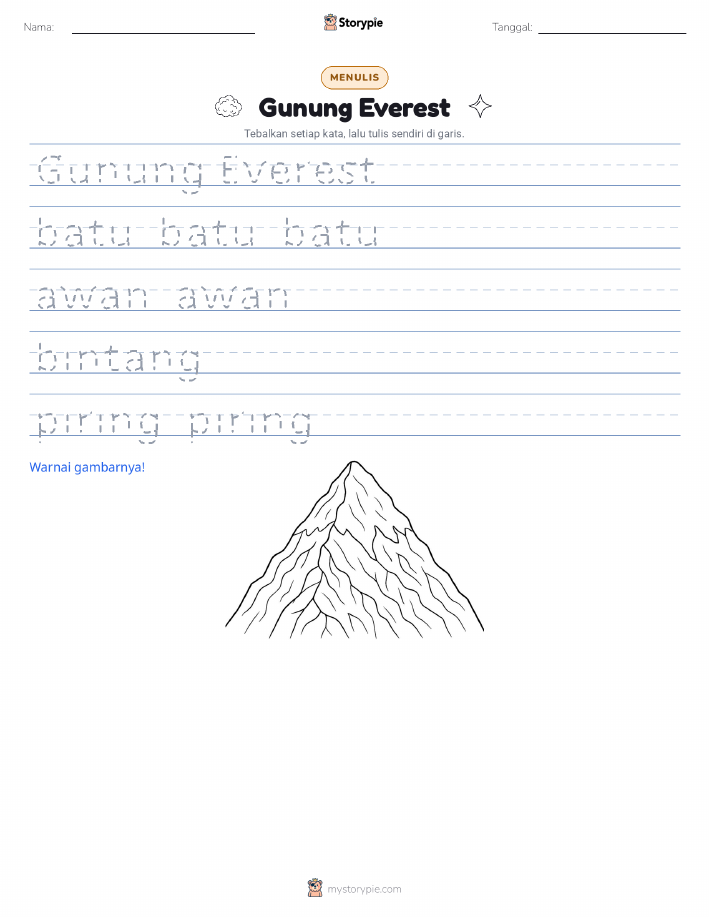 Nama:
Storypie
Tanggal:
MENULIS
Gunung Everest
Tebalkan setiap kata, lalu tulis sendiri di garis.
Gunung Everest
batu batu batu
awan awan
bintang
piring piring
Warnai gambarnya!
mystorypie.com